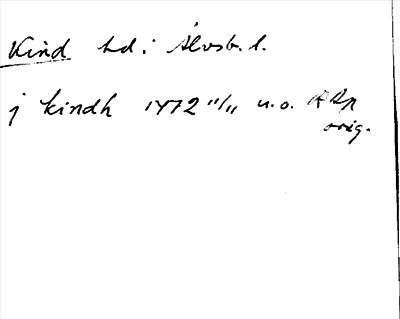 Kind hd i Älvsb. l.
j kindh 1472 11/11 u.o. RAp
orig.